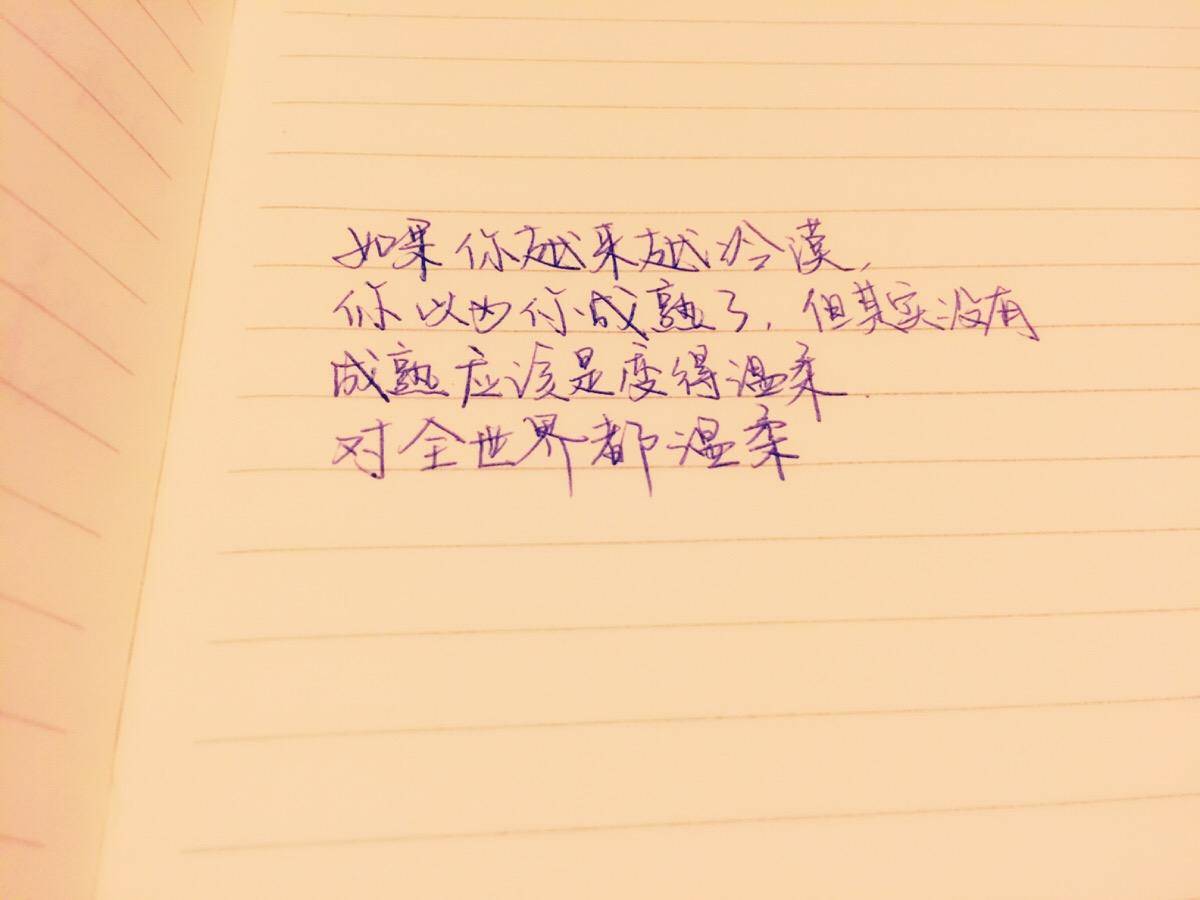 如果你越来越冷漠,
你以为你成熟了,但其实没有
成熟应该是变得温柔.
对全世界都温柔